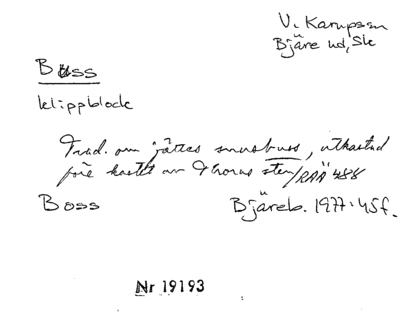 V. Karupssn
Bjäre hd, Sk
Buss
klippblock
Trad. om jättes snusbuss, utkastad
före kastet av Thorus sten/RAÄ 488
Boss Bjäreb. 1977:45f.
Nr 19193